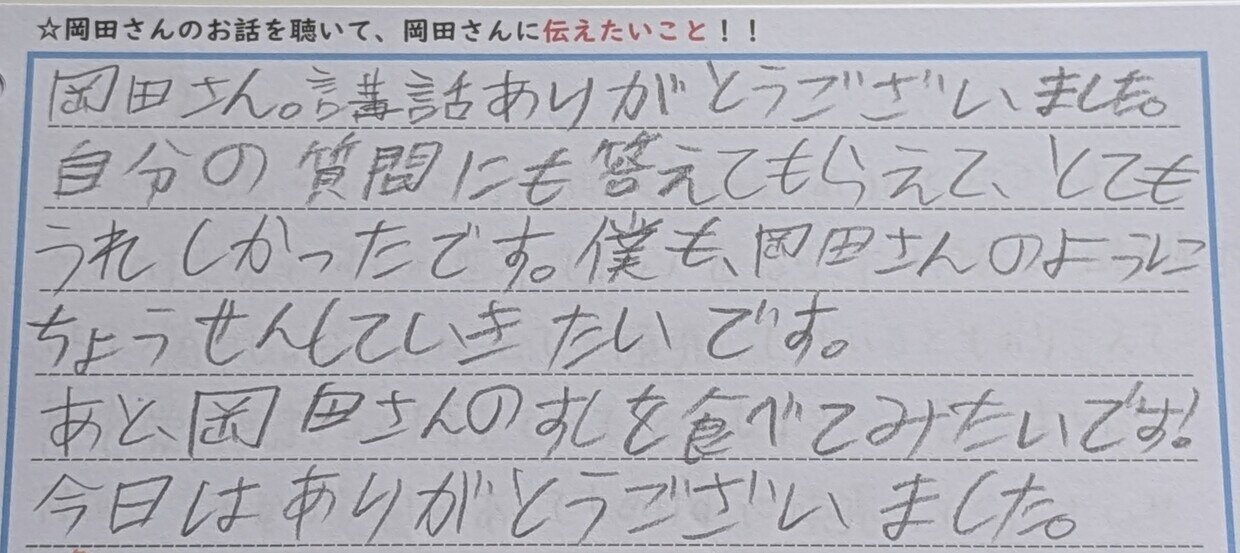 ☆岡田さんのお話を聴いて、岡田さんに伝えたいこと！！
岡田さん。講話ありがとうございました。
自分の質問にも答えてもらえて、とても
うれしかったです。僕も、岡田さんのように
ちょうせんしていきたいです。
あと、岡田さんのすしを食べてみたいです！
今日はありがとうございました。